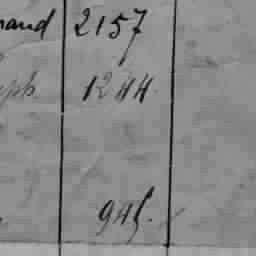 rand 2157
ph 1244
945.